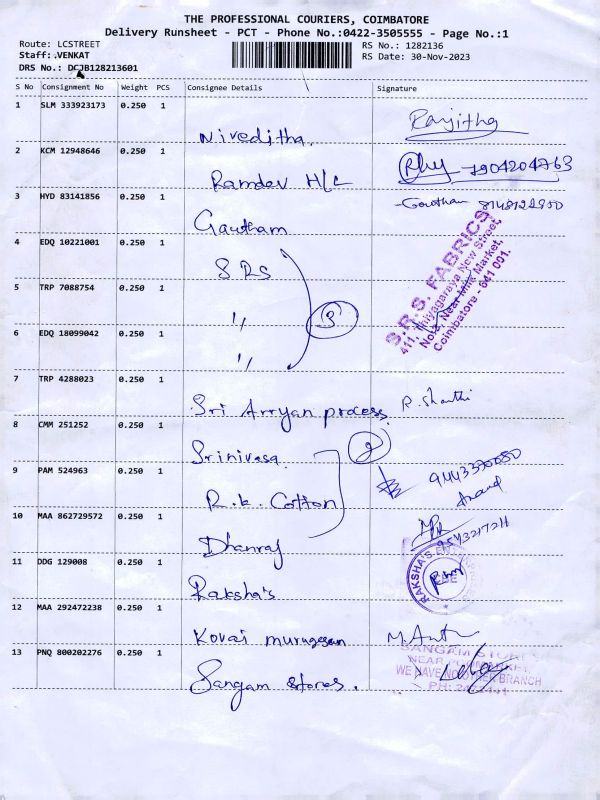 THE PROFESSIONAL COURIERS, COIMBATORE
Delivery Runsheet - PCT - Phone No.:0422-3505555 - Page No.:1
Route: LCSTREET
Staff: VENKAT
DRS No.: DCJB128213601
RS No.: 1282136
RS Date: 30-Nov-2023
S No Consignment No Weight PCS Consignee Details Signature
1 SLM 333923173 0.250 1
Niveditha. Ranjitha
2 KCM 12948646 0.250 1
Ramdev H/L 7904204763
3 HYD 83141856 0.250 1
Gautham Gautham
4 EDQ 10221001 0.250 1
SRS
5 TRP 7088754 0.250 1
〃 3
6 EDQ 18099042 0.250 1
〃
S.R.S. FABRICS
411, Thiyagaraya New Street,
No.3, Near Milk Market,
Coimbatore - 641 001.
7 TRP 4288023 0.250 1
Sri Arryan process. R. Shanthi
8 CMM 251252 0.250 1
Srinivasa. 2
9 PAM 524963 0.250 1
R.K. Cotton Anand
10 MAA 862729572 0.250 1
Dhanraj
11 DDG 129008 0.250 1
Raksha's
RAKSHA'S
12 MAA 292472238 0.250 1
Kovai murugesan
13 PNQ 800202276 0.250 1
Sangam stores.
SANGAM STORE
WE HAVE NO OTHER BRANCH